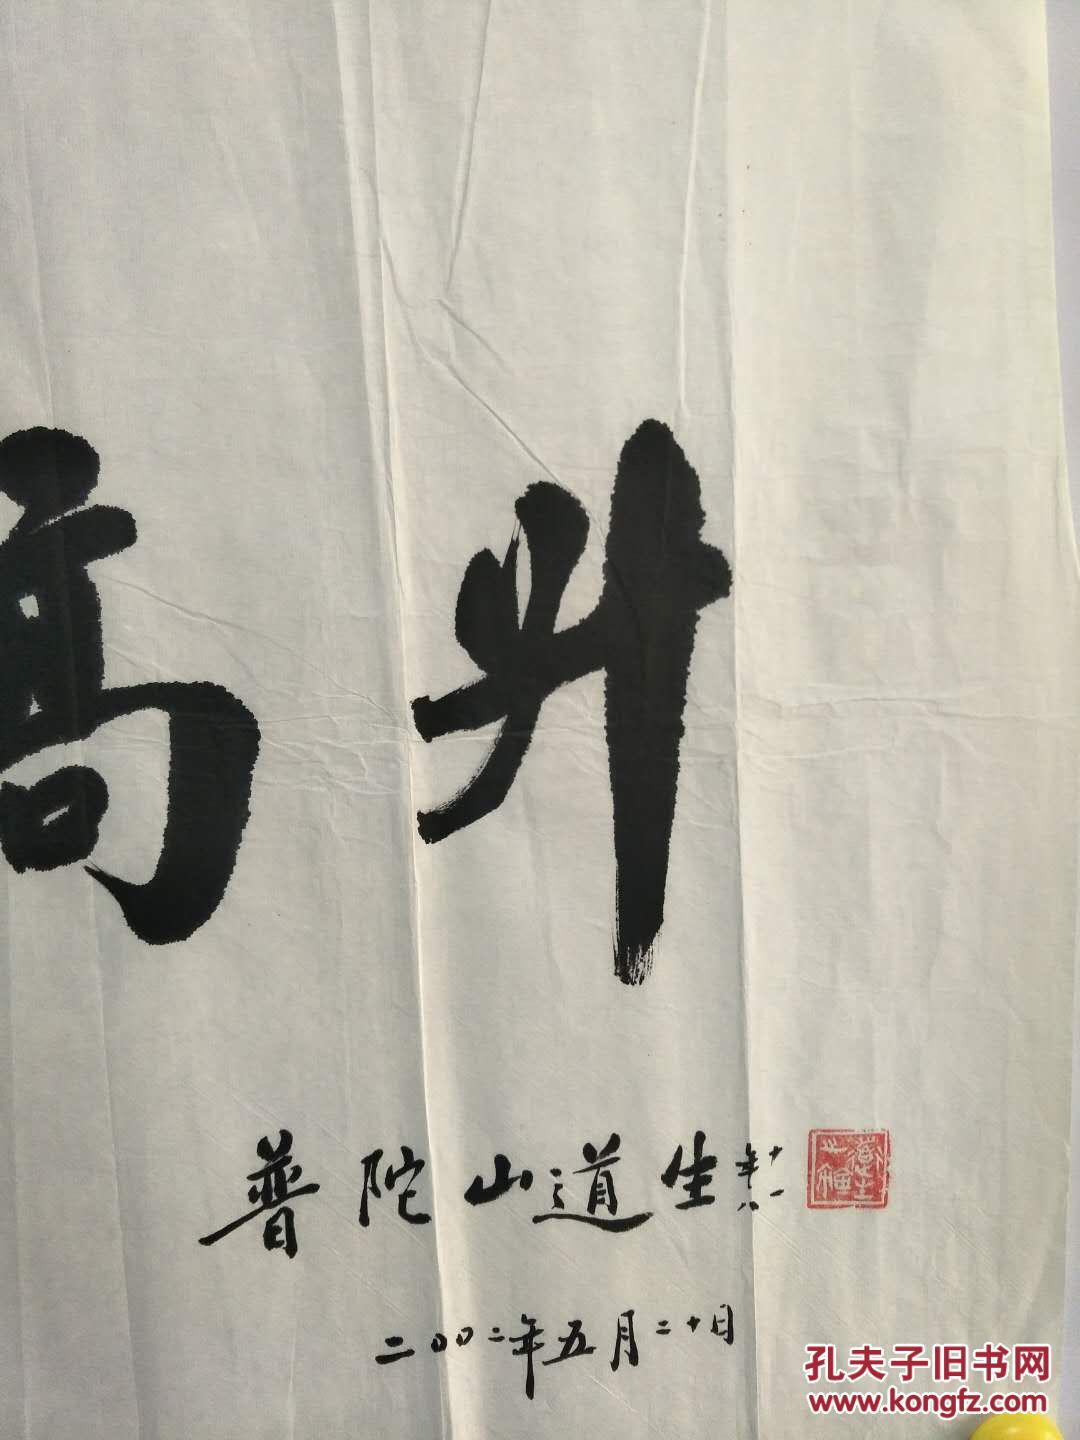 高升
普陀山道生
二〇〇二年五月二十日
孔夫子旧书网
www.kongfz.com